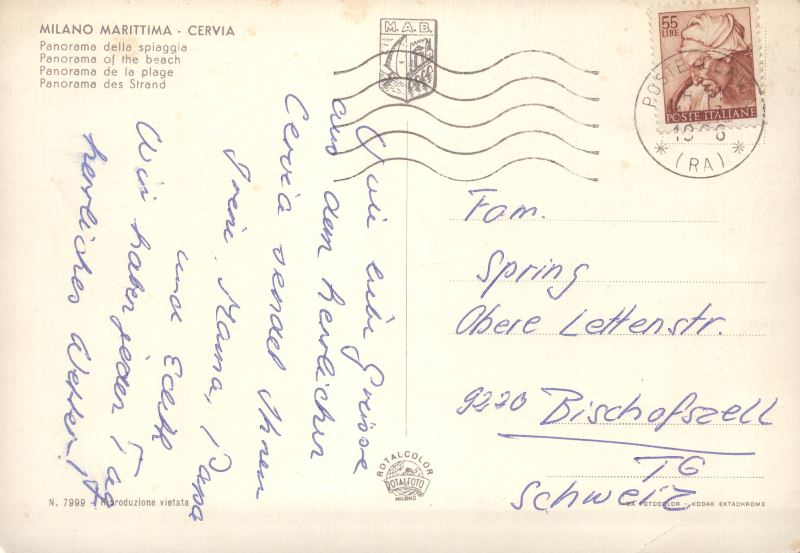 MILANO MARITTIMA - CERVIA
Panorama della spiaggia
Panorama of the beach
Panorama de la plage
Panorama des Strand
M. A. B.
55
LIRE
POSTE ITALIANE
POSTE
1966
(RA)
Viele liebe Grüsse
aus dem herrlichen
Cervia sendet Ihnen
Mama, Papa
und Edith
Wir haben jeden Tag
herrliches Wetter!
Fam.
Spring
Obere Lettenstr.
9220 Bischofszell
TG
Schweiz
ROTALCOLOR
ROTALFOTO
MILANO
N. 7999 - Riproduzione vietata
FOTOCOLOR - KODAK EKTACHROME